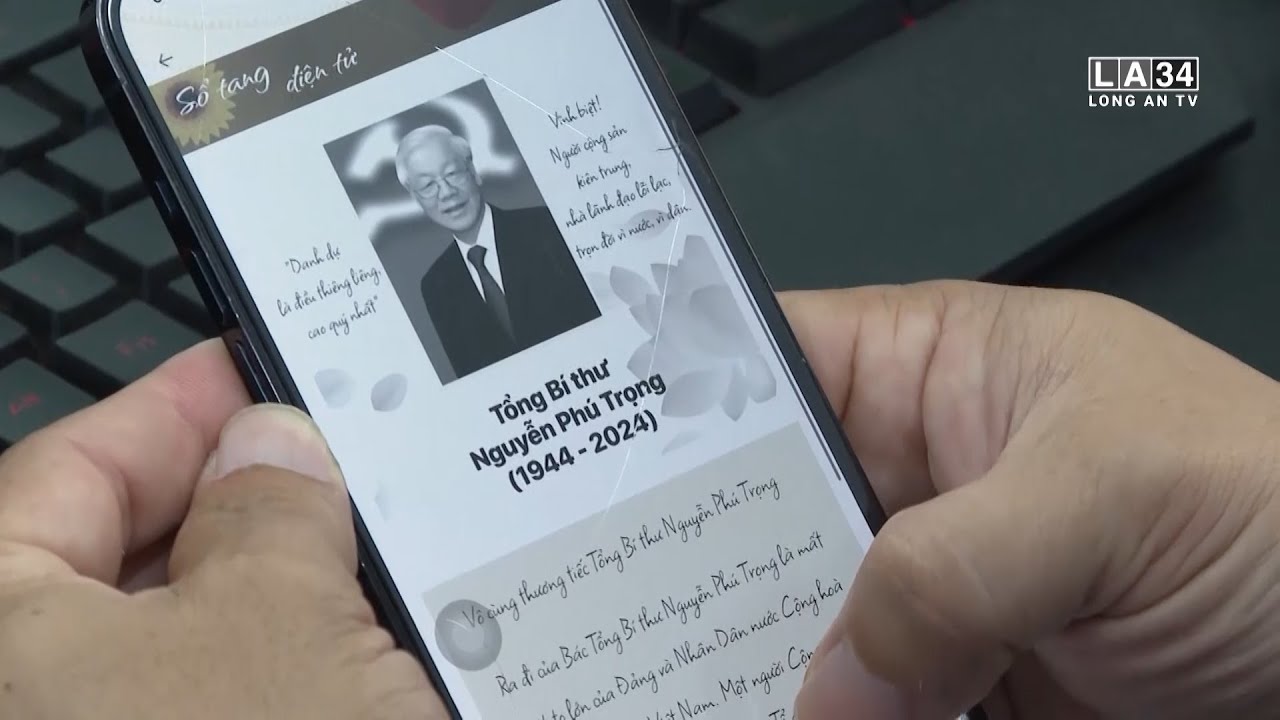 LA34
LONG AN TV
Sổ tang điện tử
Vĩnh biệt!
Người cộng sản
kiên trung,
nhà lãnh đạo lỗi lạc,
trọn đời vì nước, vì dân.
"Danh dự
là điều thiêng liêng,
cao quý nhất"
Tổng Bí thư
Nguyễn Phú Trọng
(1944 - 2024)
Vô cùng thương tiếc Tổng Bí thư Nguyễn Phú Trọng
Ra đi của Bác Tổng Bí thư Nguyễn Phú Trọng là mất
to lớn của Đảng và Nhân Dân nước Cộng hoà
Việt Nam. Một người Cộng
Fn